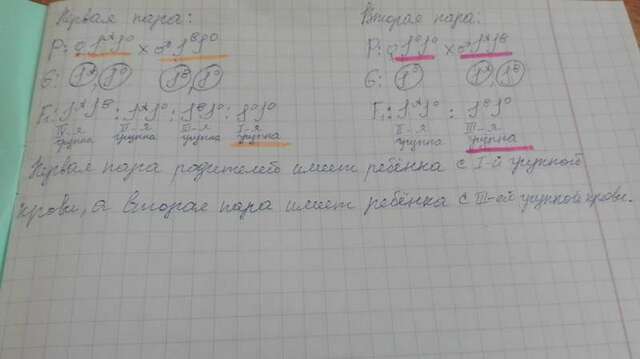 Первая пара:
P: ♀ IᴬI⁰ × ♂ IᴮI⁰
G: Iᴬ, I⁰ Iᴮ, I⁰
F₁: IᴬIᴮ : IᴬI⁰ : IᴮI⁰ : I⁰I⁰
IV-я группа II-я группа III-я группа I-я группа
Вторая пара:
P: ♀ I⁰I⁰ × ♂ IᴬIᴮ
G: I⁰ Iᴬ, Iᴮ
F₁: IᴬI⁰ : IᴮI⁰
II-я группа III-я группа
Первая пара родителей имеет ребёнка с I-й группой
крови, а вторая пара имеет ребёнка с III-ей группой крови.